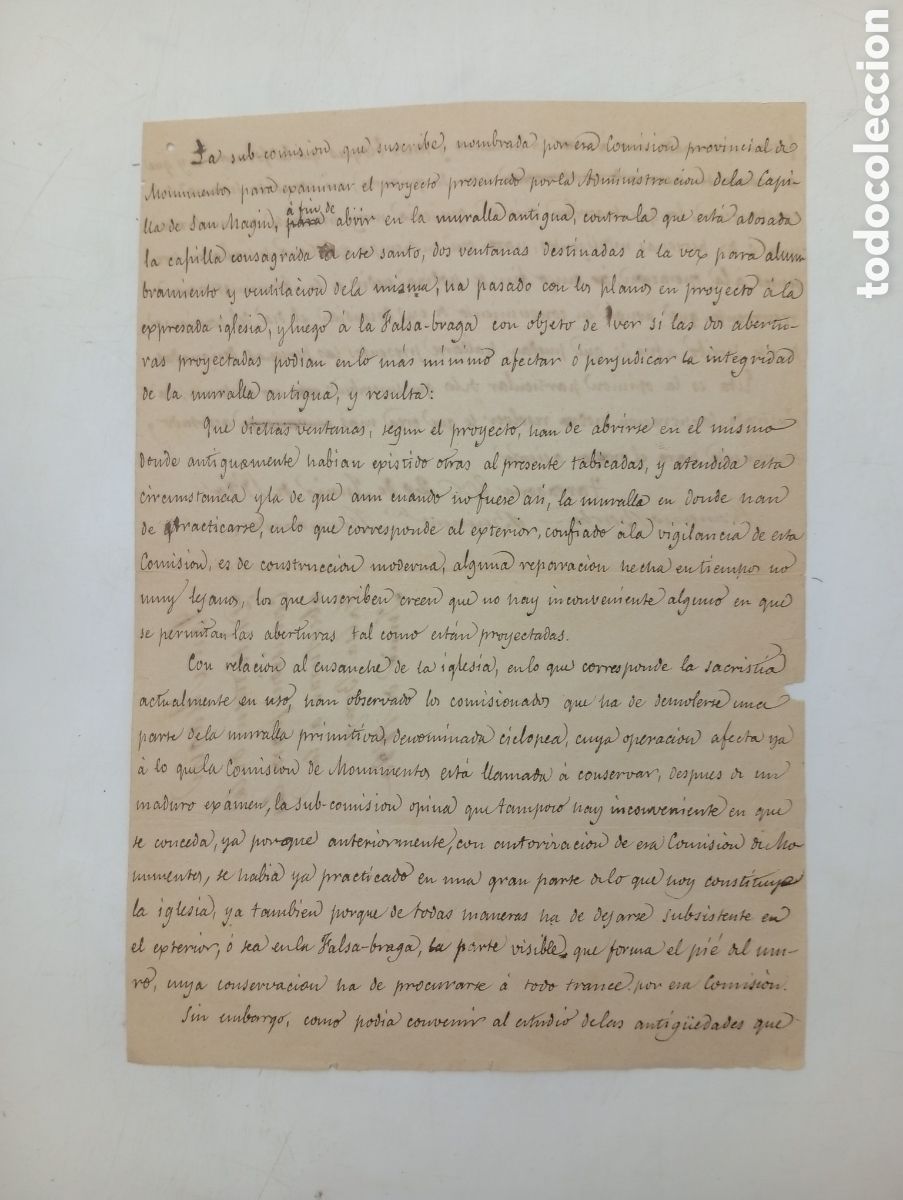 La sub-comision que suscribe, nombrada por esa Comision provincial de
Monumentos para examinar el proyecto presentado por la Administracion de la Capi-
lla de San Magin, á fin de abrir en la muralla antigua, contra la que está adosada
la capilla consagrada á este santo, dos ventanas destinadas á la vez para alum-
bramiento y ventilacion de la misma, ha pasado con los planos en proyecto á la
expresada iglesia, y luego á la Falsa-braga con objeto de ver si las dos abertu-
ras proyectadas podian en lo más mínimo afectar ó perjudicar la integridad
de la muralla antigua, y resulta:
Que dichas ventanas, segun el proyecto, han de abrirse en el mismo
donde antiguamente habian existido otras al presente tabicadas, y atendida esta
circumstancia y la de que aun cuando no fuese asi, la muralla en donde han
de practicarse, en lo que corresponde al exterior, confiado á la vigilancia de esta
Comision, es de construccion moderna, alguna reparacion hecha en tiempos no
muy lejanos, los que suscriben creen que no hay inconveniente alguno en que
se permitan las aberturas tal como están proyectadas.
Con relacion al ensanche de la iglesia, en lo que corresponde la sacristia
actualmente en uso, han observado los comisionados que ha de demolerse una
parte de la muralla primitiva, denominada ciclopea, cuya operacion afecta ya
á lo que la Comision de Monumentos está llamada á conservar, despues de un
maduro exámen, la sub-comision opina que tampoco hay inconveniente en que
se conceda, ya porque anteriormente, con autorizacion de esa Comision de Mo-
numentos, se habia ya practicado en una gran parte de lo que hoy constituye
la iglesia, ya tambien porque de todas maneras ha de dejarse subsistente en
el exterior, ó sea en la Falsa-braga, la parte visible que forma el pié del mu-
ro, cuya conservacion ha de procurarse á todo trance por esa Comision.
Sin embargo, como podia convenir al estudio de las antigüedades que
todocoleccion